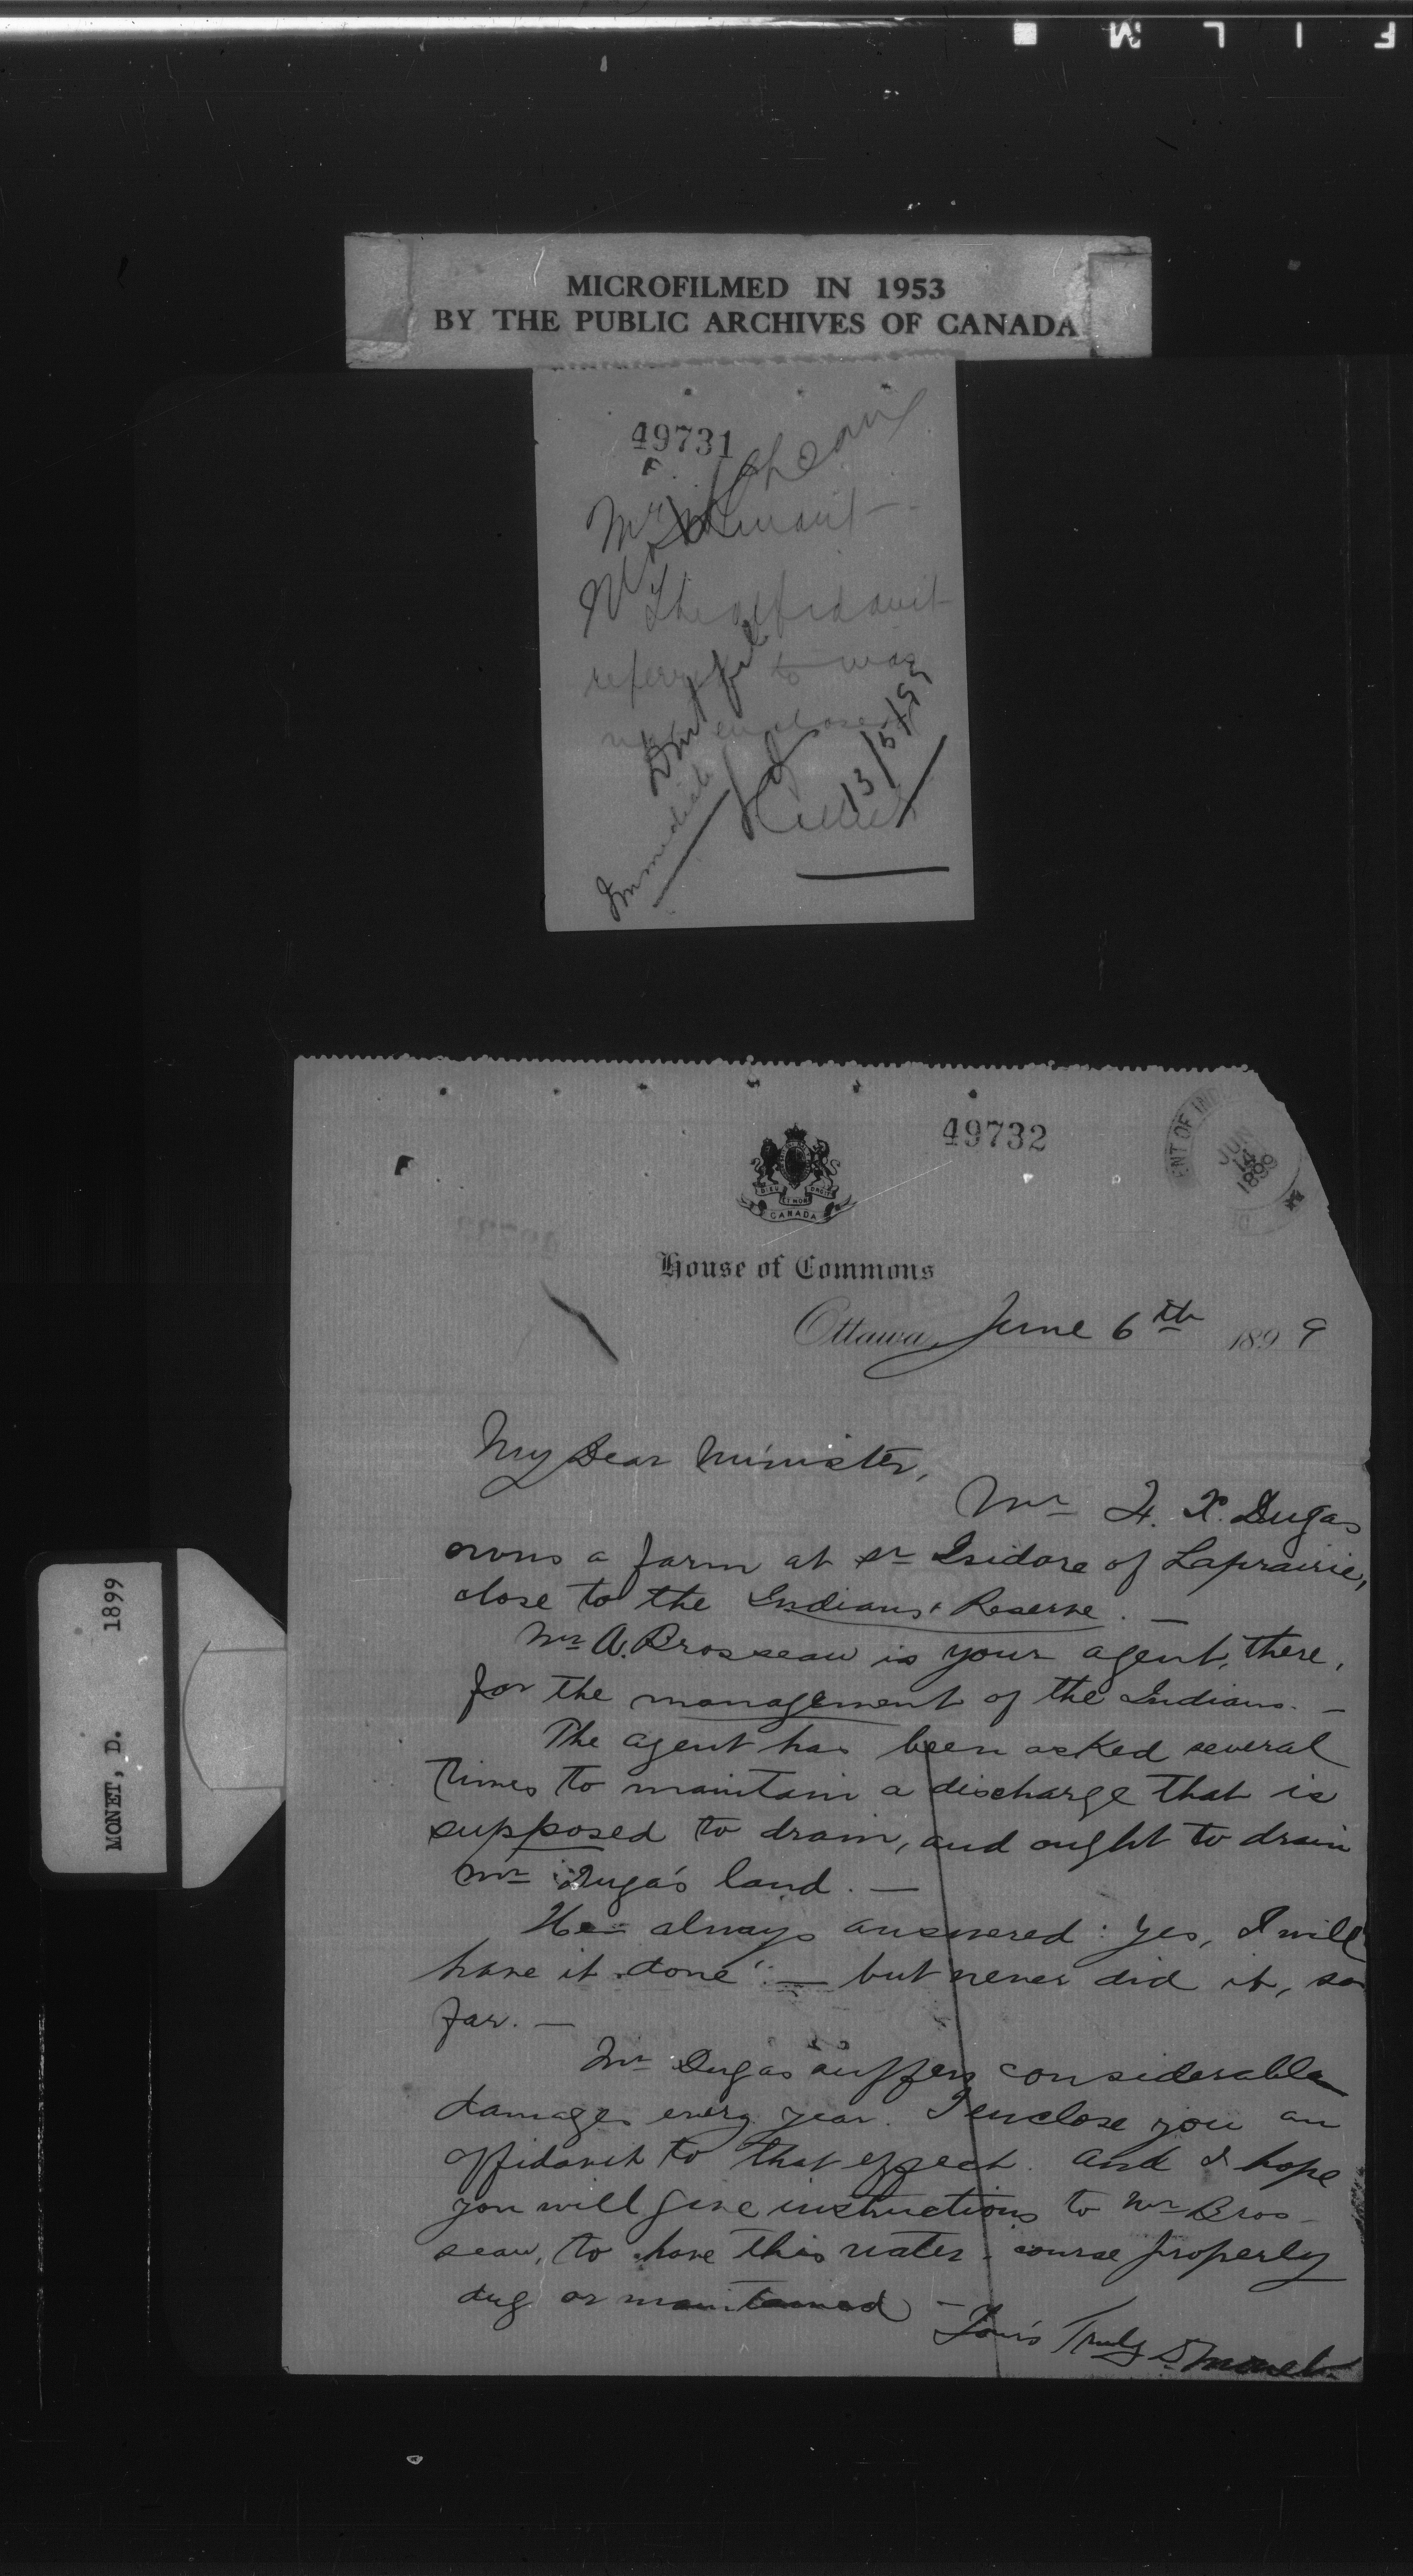 FILM
MICROFILMED IN 1953
BY THE PUBLIC ARCHIVES OF CANADA
49731
Mr
The affidavit
referred to was
not enclosed
Immediate
13/6/99
49732
DIEU ET MON DROIT
CANADA
ENT OF IND
JUN
14
1899
House of Commons
Ottawa, June 6th 1899
My Dear Minister,
Mr F. X. Dugas
owns a farm at St Isidore of Laprairie,
close to the Indians' Reserve. —
Mr A. Brosseau is your agent, there,
for the management of the Indians. —
The agent has been asked several
times to maintain a discharge that is
supposed to drain, and ought to drain
Mr Dugas' land. —
He always answered: Yes, I will
have it done" — but never did it, so
far. —
Mr Dugas suffers considerable
damages every year. I enclose you an
affidavit to that effect. and I hope
you will give instructions to Mr Bros-
seau, to have this water-course properly
dug or maintained —
Yours Truly D. Monet
MONET, D. 1899